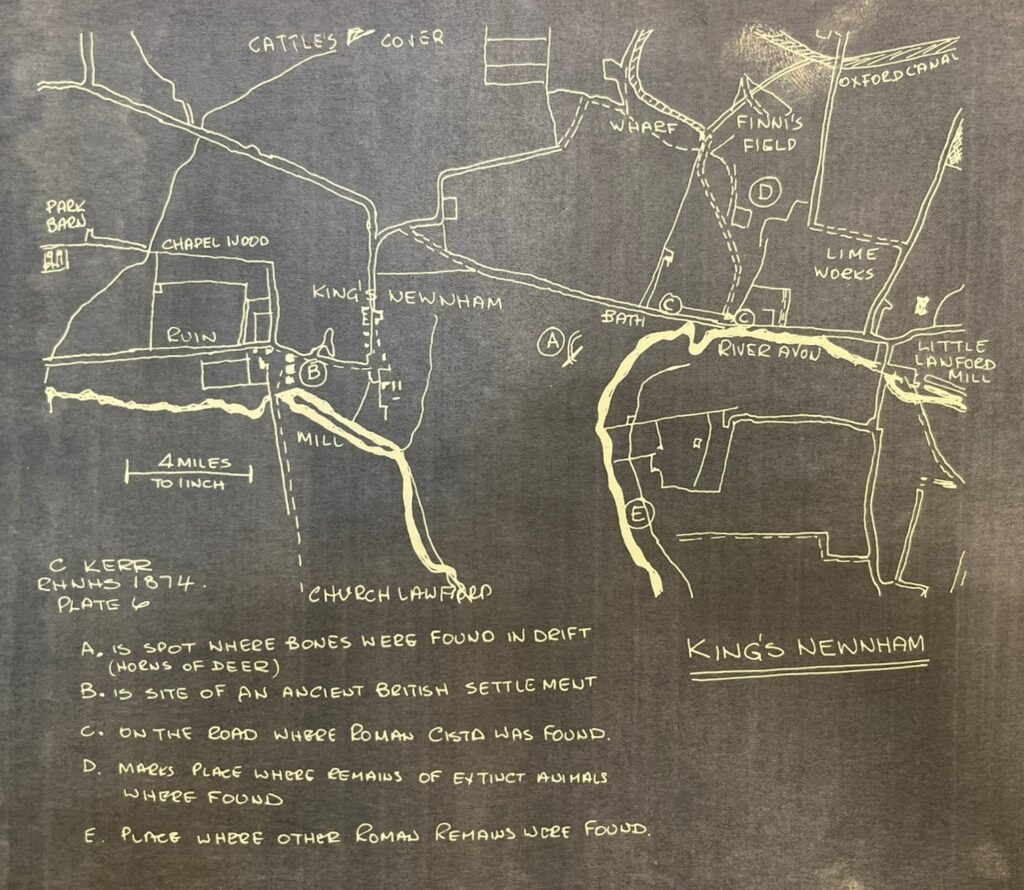 CATTLE'S COVER
OXFORD CANAL
WHARF
FINNI'S
FIELD
D
PARK
BARN
CHAPEL WOOD
LIME
WORKS
KING'S NEWNHAM
C
C
BATH
RUIN
A
RIVER AVON
LITTLE
LANFORD
MILL
B
MILL
4 MILES
TO 1 INCH
E
C KERR
RHNHS 1874.
PLATE 6
CHURCH LAWFORD
KING'S NEWNHAM
A. IS SPOT WHERE BONES WERE FOUND IN DRIFT
(HORNS OF DEER)
B. IS SITE OF AN ANCIENT BRITISH SETTLEMENT
C. ON THE ROAD WHERE ROMAN CISTA WAS FOUND.
D. MARKS PLACE WHERE REMAINS OF EXTINCT ANIMALS
WHERE FOUND
E. PLACE WHERE OTHER ROMAN REMAINS WERE FOUND.